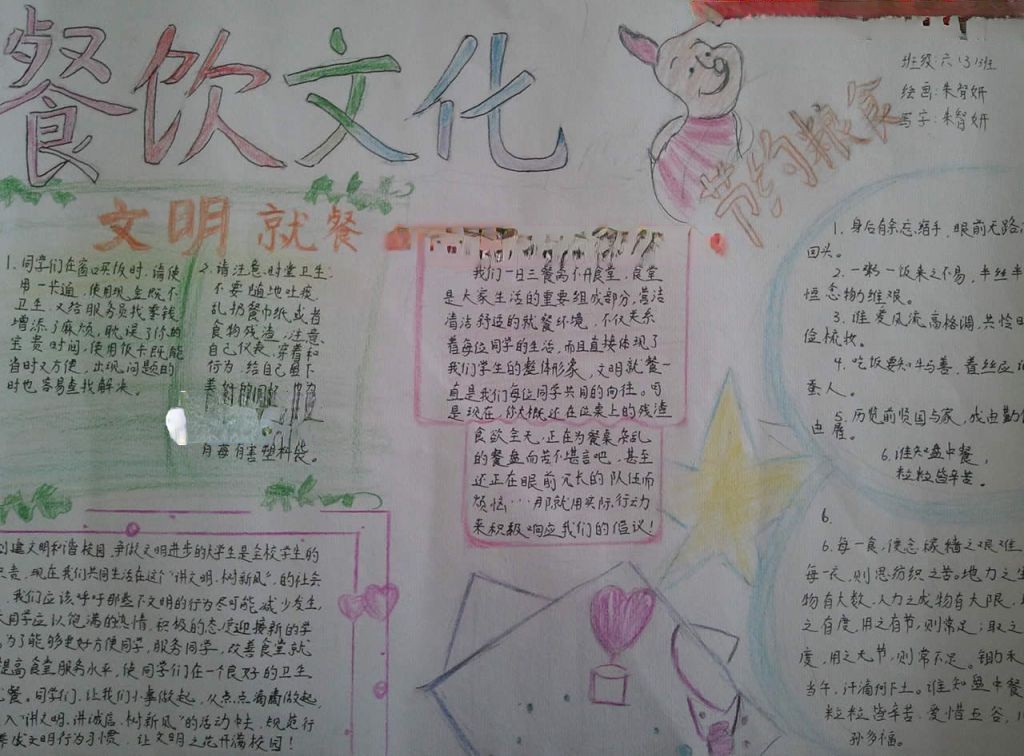 餐饮文化
班级:六(3)班
绘画:朱智妍
写字:朱智妍
节约粮食
文明就餐
1.同学们在窗口买饭时,请使
用一卡通,使用现金既不
卫生,又给服务员找零钱
增添了麻烦,耽误了你的
宝贵时间,使用饭卡既能
省时又方便,出现问题的
时也容易查找解决。
2.请注意时堂卫生,
不要随地吐痰,
乱扔餐巾纸或者
食物残渣,注意
自己仪表,穿着和
行为,给自己留下
月每有害塑料袋。
我们一日三餐离不开食堂,食堂
是大家生活的重要组成部分,营洁
清洁舒适的就餐环境,不仅关系
着每位同学的生活,而且直接体现了
我们学生的整体形象,文明就餐一
直是我们每位同学共同的向往。可
是现在,你大概还在位桌上的残渣
食欲全无,正在为餐桌杂乱
的餐盘向苦不堪言吧,甚至
还正在眼前冗长的队伍而
烦恼…那就用实际行动
来积极响应我们的倡议!
1.身后有余忘缩手,眼前无路
回头。
2.一粥一饭来之不易,半丝半
恒念物维艰。
3.谁爱风流高格调,共怜时
俭梳妆。
4.吃饭要知牛与善,着丝应
蚕人。
5.历览前贤国与家,成由勤
由
6.谁知盘中餐,
粒粒皆辛苦。
6.
6.每一食,便念稼穑之艰难
每一衣,则思纺织之苦。地力之生
物有大数,人力之成物有大限,
之有度,用之有节,则常足;取之
度,用之无节,则常不足。锄禾
当午,汗滴何下土。谁知盘中餐
粒粒皆辛苦,爱惜五谷,
孙多福。
创建文明和谐校园,争做文明进步的大学生是全校学生的
责,现在我们共同生活在这个"讲文明,树新风"的社会
,我们应该呼吁那些不文明的行为尽可能减少发生,
同学应以饱满的热情,积极的态度迎接新的学
为了能够更好方便同学,服务同学,改善食堂就
提高食堂服务水平,使同学们在一个良好的卫生
餐。同学们,让我们小事做起,从点点滴滴做起,
入"讲文明,讲诚信,树新风"的活动中去,规范行
养成文明行为习惯,让文明之花开满校园!